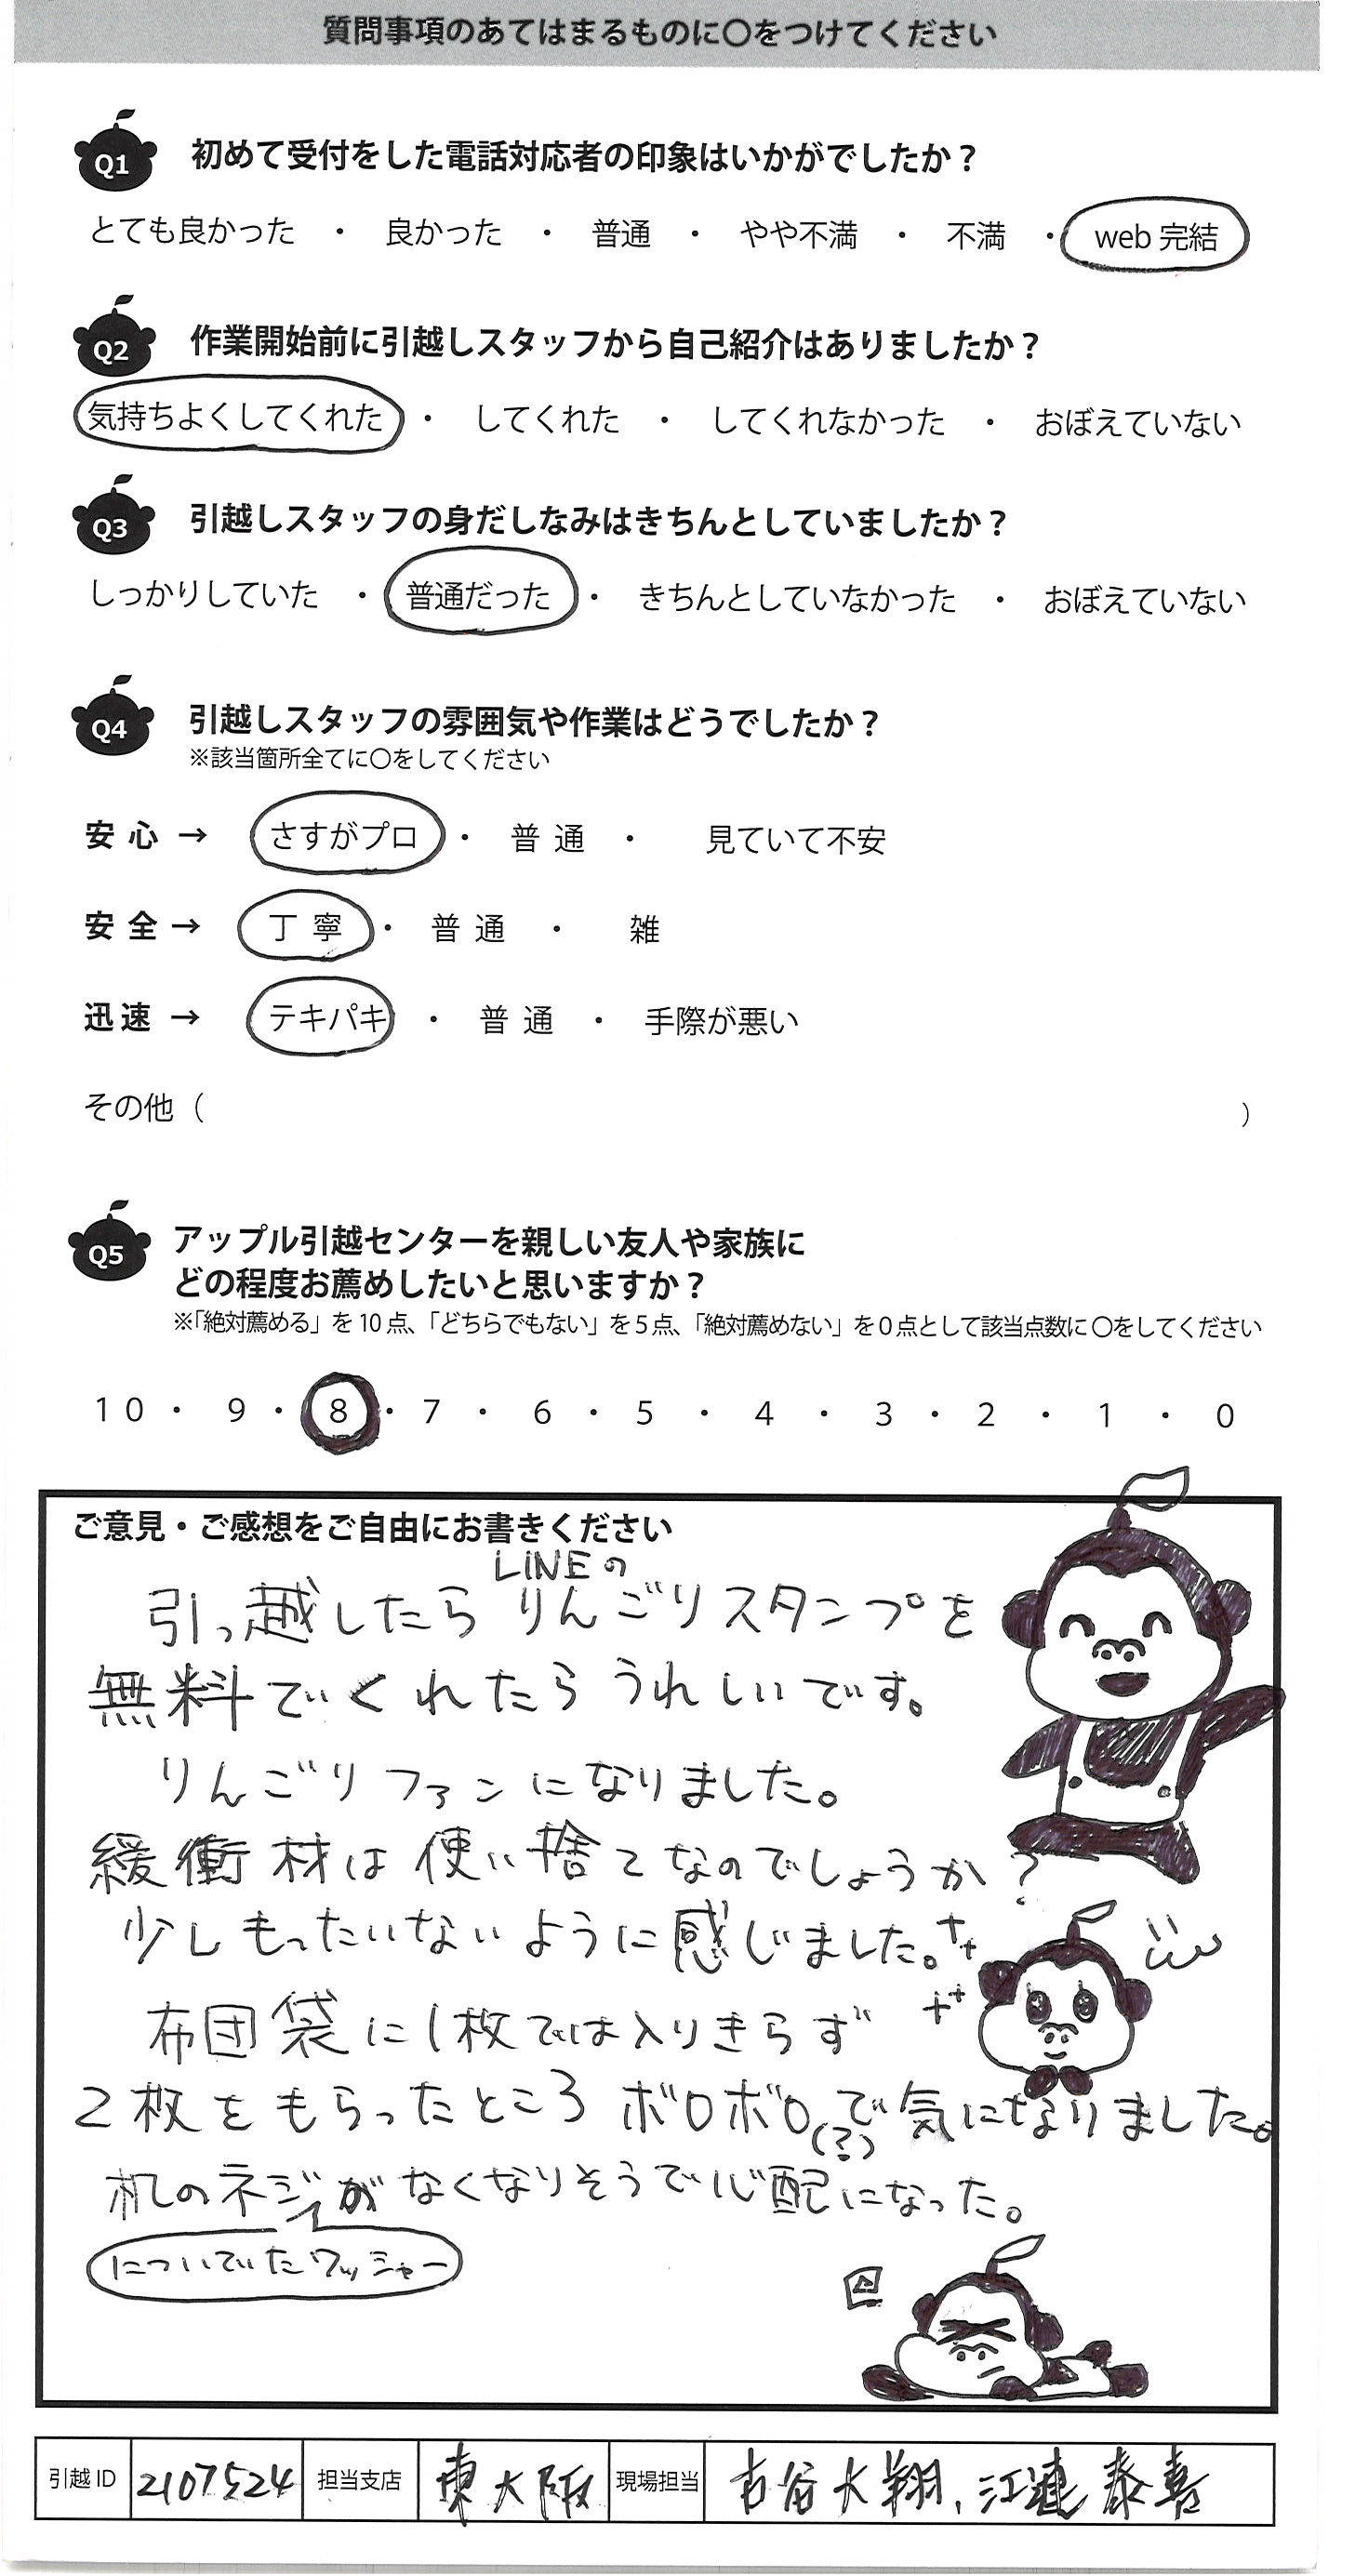 質問事項のあてはまるものに〇をつけてください
Q1 初めて受付をした電話対応者の印象はいかがでしたか？
とても良かった ・ 良かった ・ 普通 ・ やや不満 ・ 不満 ・ web 完結
Q2 作業開始前に引越しスタッフから自己紹介はありましたか？
気持ちよくしてくれた ・ してくれた ・ してくれなかった ・ おぼえていない
Q3 引越しスタッフの身だしなみはきちんとしていましたか？
しっかりしていた ・ 普通だった ・ きちんとしていなかった ・ おぼえていない
Q4 引越しスタッフの雰囲気や作業はどうでしたか？
※該当箇所全てに〇をしてください
安心 → さすがプロ ・ 普通 ・ 見ていて不安
安全 → 丁寧 ・ 普通 ・ 雑
迅速 → テキパキ ・ 普通 ・ 手際が悪い
その他（ ）
Q5 アップル引越センターを親しい友人や家族に
どの程度お薦めしたいと思いますか？
※「絶対薦める」を10点、「どちらでもない」を5点、「絶対薦めない」を0点として該当点数に〇をしてください
10 ・ 9 ・ 8 ・ 7 ・ 6 ・ 5 ・ 4 ・ 3 ・ 2 ・ 1 ・ 0
ご意見・ご感想をご自由にお書きください
LINEの
引っ越したら りんごりスタンプを
無料でくれたら うれしいです。
りんごりファンになりました。
緩衝材は使い捨てなのでしょうか？
少しもったいないように感じました。
布団袋に1枚では入りきらず
2枚をもらったところ ボロボロで気になりました。
(?)
机のネジがなくなりそうで心配になった。
についていたワッシャー
引越ID 2107524 担当支店 東大阪 現場担当 古谷大翔、江連泰喜